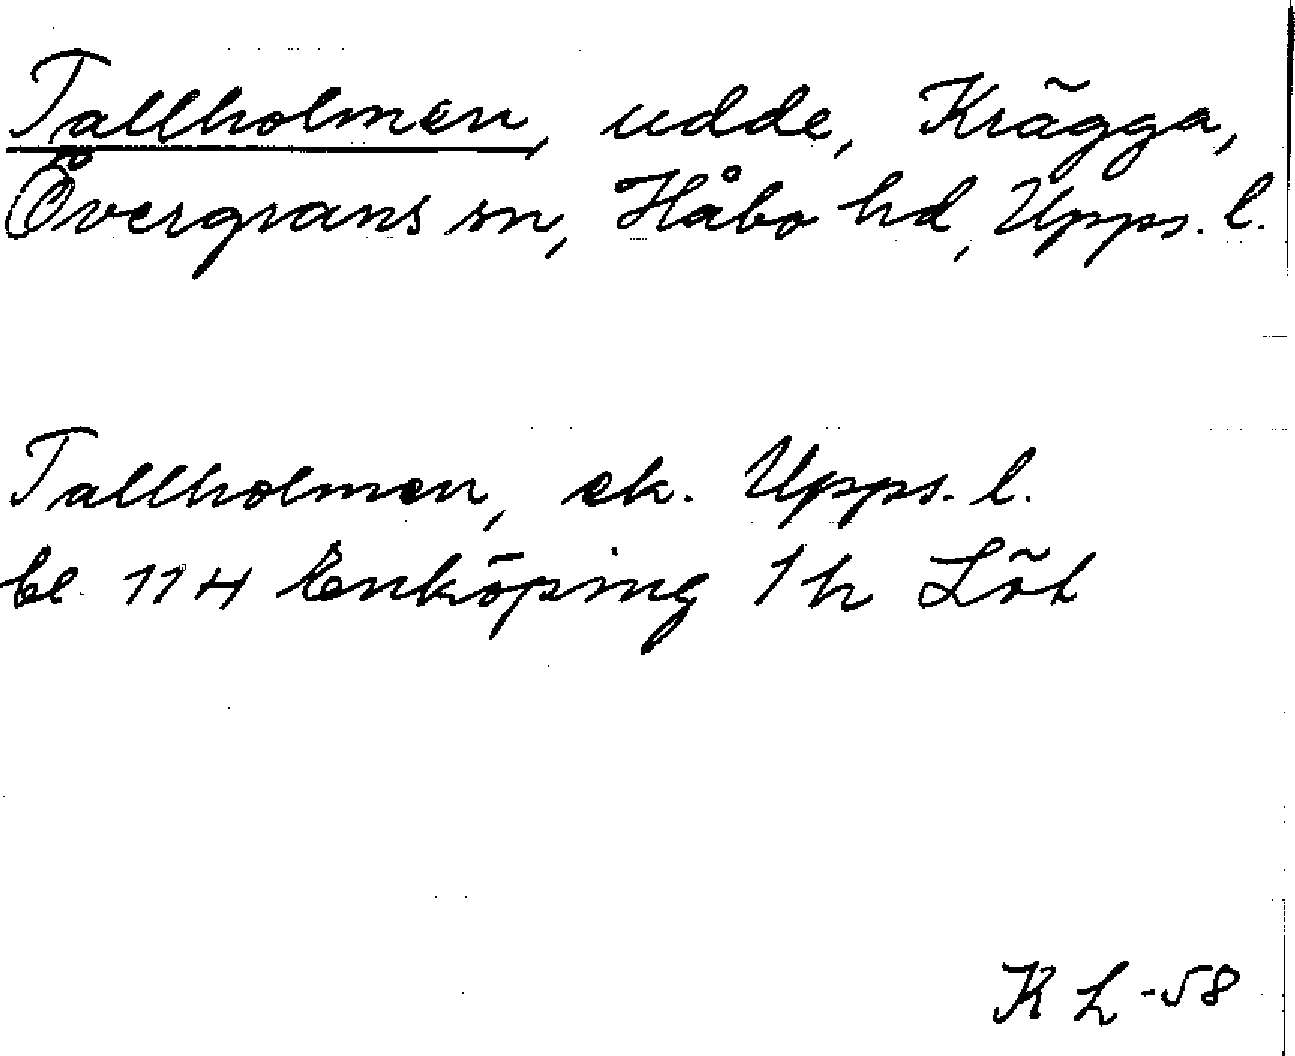 Tallholmen, udde, Krägga,
Övergrans sn, Håbo hd, Upps. l.
Tallholmen, ek. Upps. l.
bl 114 Enköping 1 h Löt
K L -58